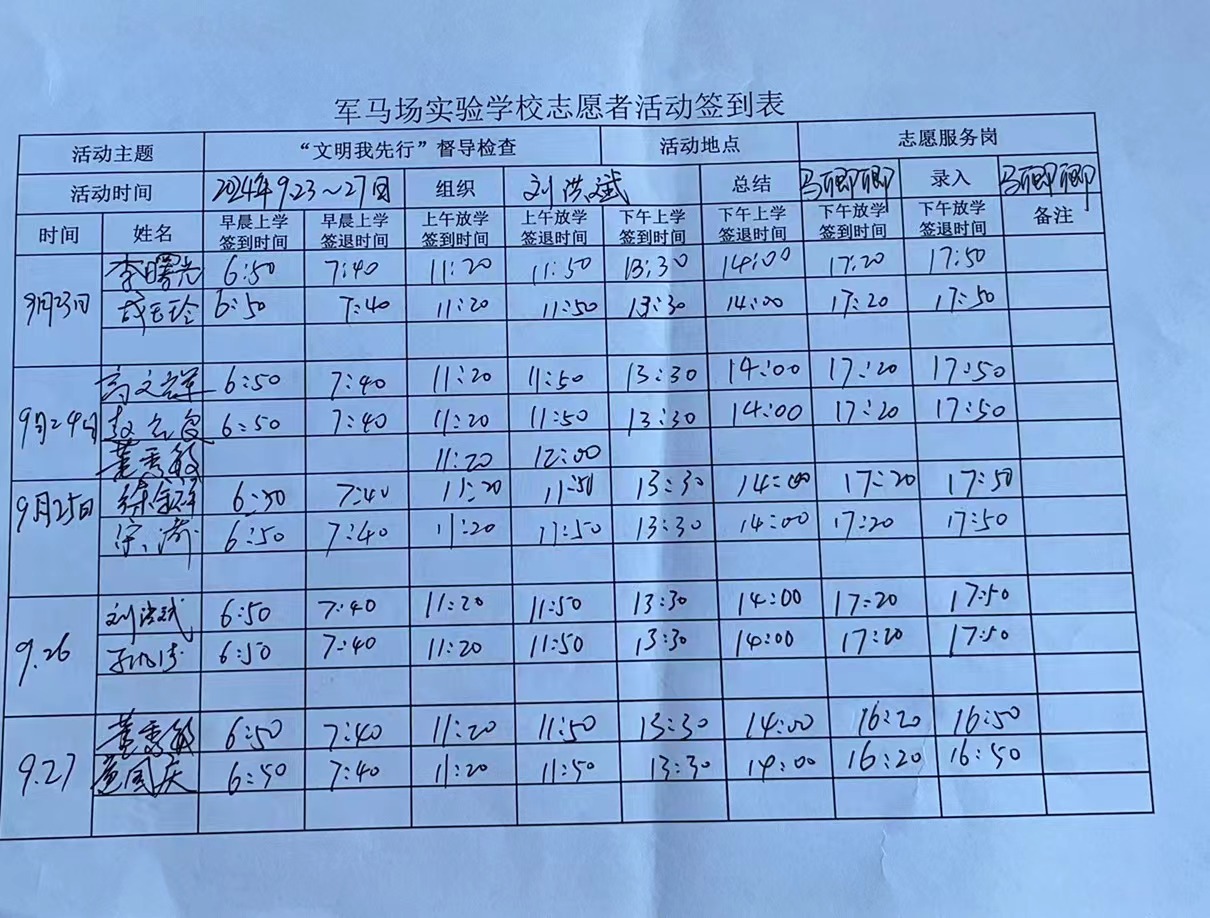 军马场实验学校志愿者活动签到表
活动主题 “文明我先行”督导检查 活动地点 志愿服务岗
活动时间 2024年9.23~27日 组织 刘洪斌 总结 马卿卿 录入 马卿卿
时间 姓名 早晨上学签到时间 早晨上学签退时间 上午放学签到时间 上午放学签退时间 下午上学签到时间 下午上学签退时间 下午放学签到时间 下午放学签退时间 备注
9月23日 李曙光 6:50 7:40 11:20 11:50 13:30 14:00 17:20 17:50
6:50 7:40 11:20 11:50 13:30 14:00 17:20 17:50
9月24日 高文 6:50 7:40 11:20 11:50 13:30 14:00 17:20 17:50
赵 6:50 7:40 11:20 11:50 13:30 14:00 17:20 17:50
董秀敏 11:20 12:00
9月25日 徐 6:50 7:40 11:20 11:50 13:30 14:00 17:20 17:50
宋涛 6:50 7:40 11:20 11:50 13:30 14:00 17:20 17:50
9.26 刘洪斌 6:50 7:40 11:20 11:50 13:30 14:00 17:20 17:50
6:50 7:40 11:20 11:50 13:30 14:00 17:20 17:50
9.27 董秀敏 6:50 7:40 11:20 11:50 13:30 14:00 16:20 16:50
国庆 6:50 7:40 11:20 11:50 13:30 14:00 16:20 16:50